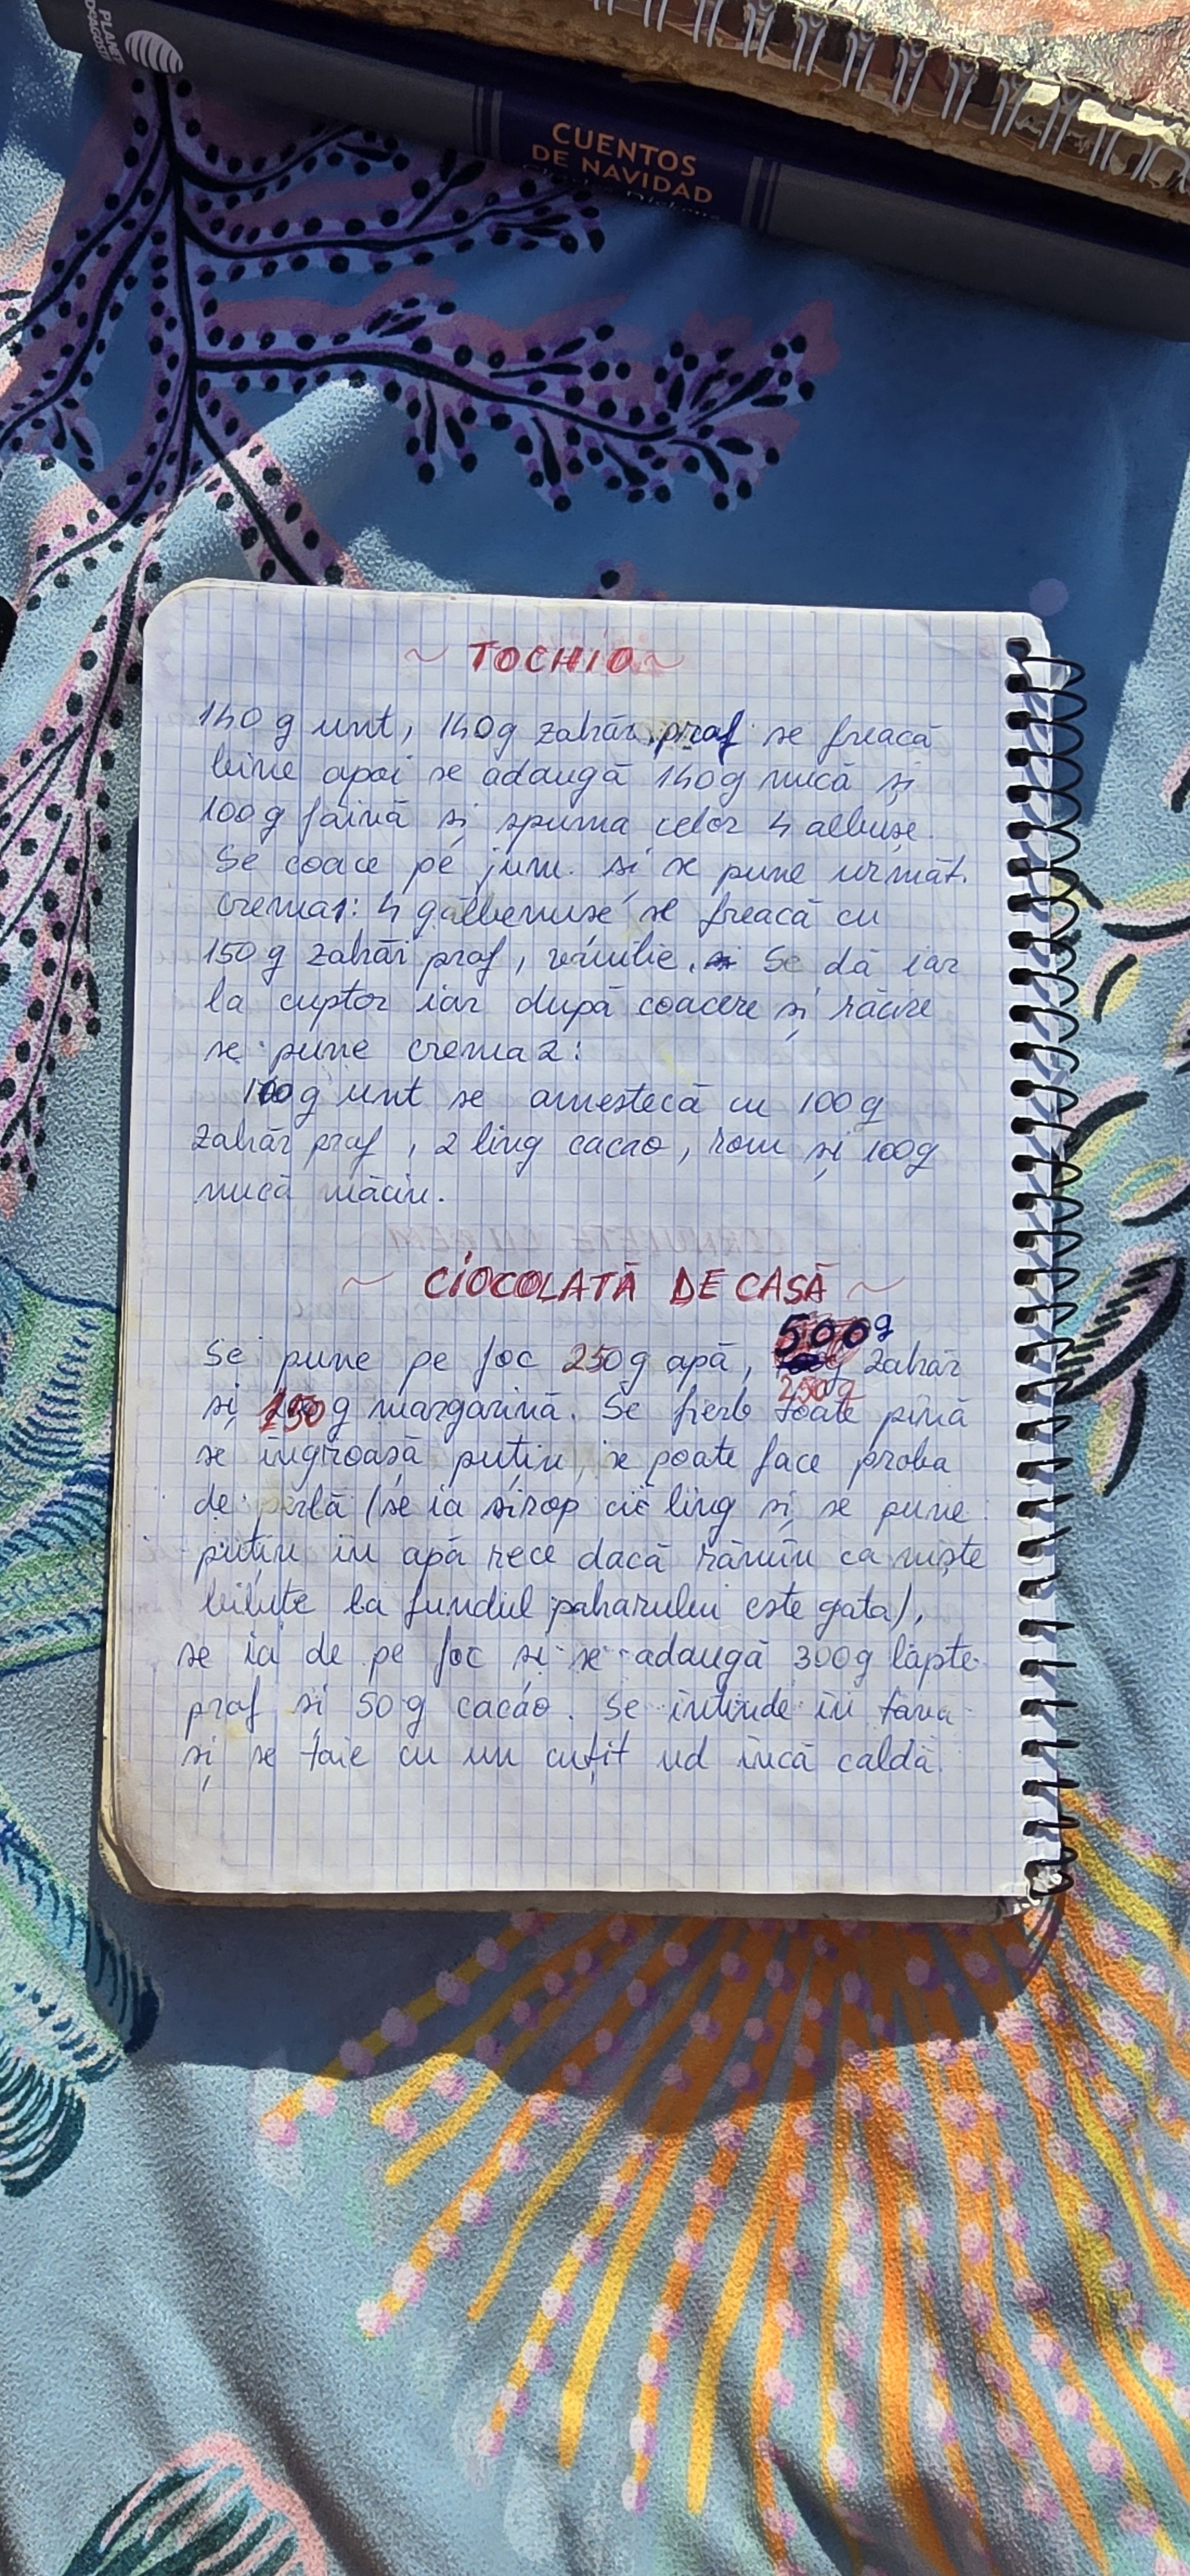 PLANETA
DEAGOSTINI
CUENTOS
DE NAVIDAD
Charles Dickens
~ TOCHIO ~
140 g unt, 140g zahăr praf se freacă
bine apoi se adaugă 140g nucă și
100g făină și spuma celor 4 albușe.
Se coace pe jum. și se pune următ.
crema1: 4 gălbenușe se freacă cu
150 g zahăr praf, vanilie. Se dă iar
la cuptor iar după coacere și răcire
se pune crema 2:
100g unt se amestecă cu 100 g
zahăr praf, 2 ling cacao, rom și 100g
nucă măcin.
~ CIOCOLATĂ DE CASĂ ~
500g
Se pune pe foc 250g apă, zahăr
250g
și 150g margarină. Se fierb toate pînă
se îngroașă puțin, se poate face proba
de perlă (se ia sirop cu ling și se pune
puțin în apă rece dacă rămîn ca niște
biluțe la fundul paharului este gata),
se ia de pe foc și se adaugă 300g lapte
praf și 50g cacao. Se întinde în tava
și se taie cu un cuțit ud încă caldă.